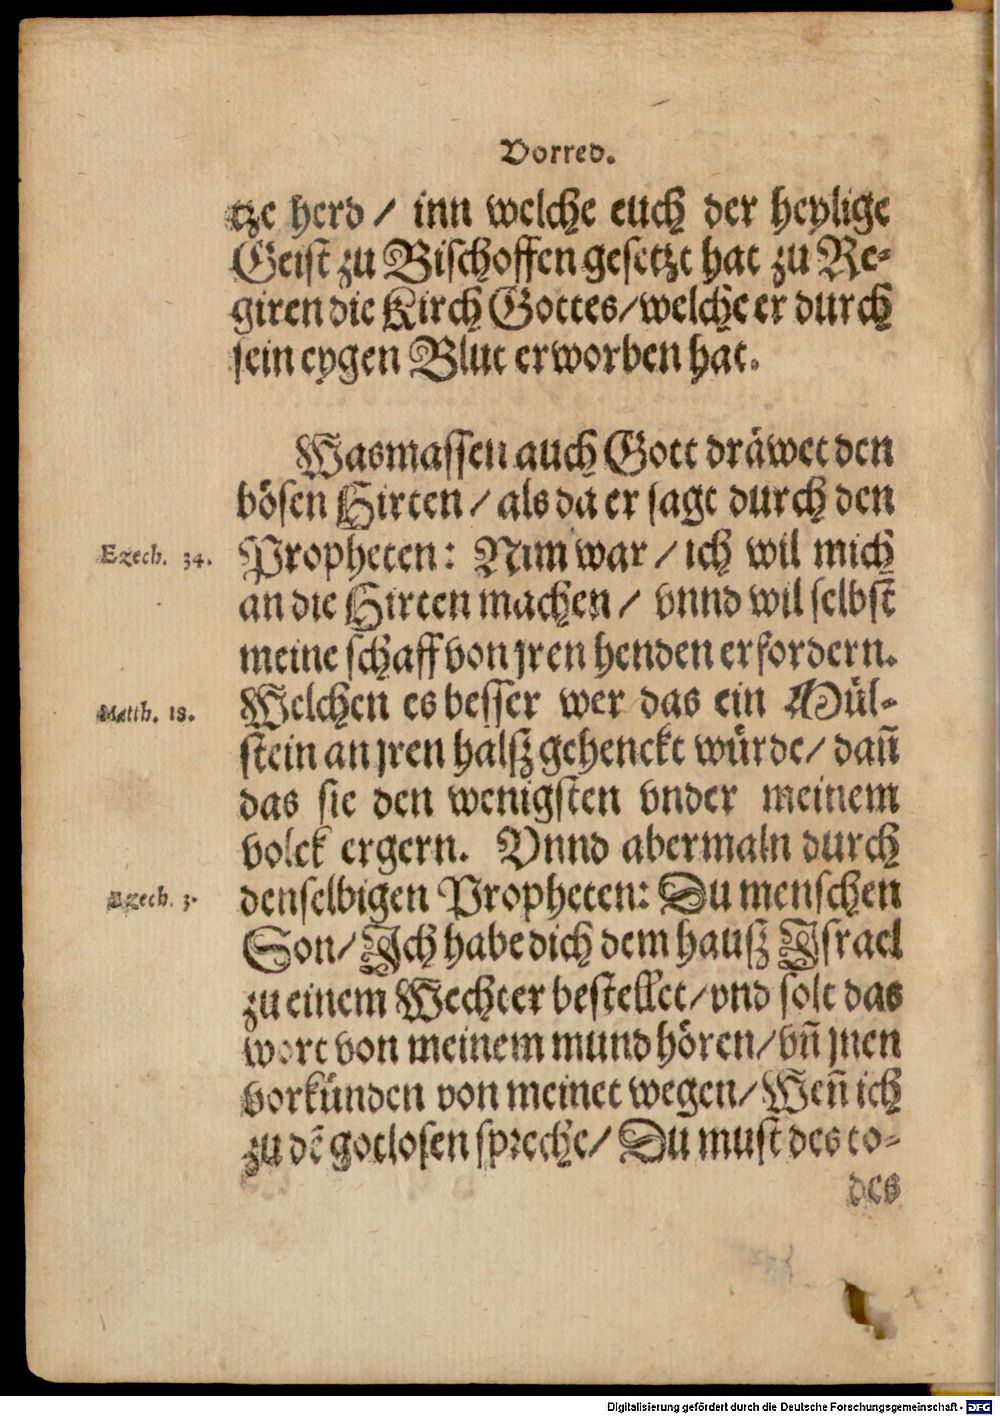 Vorred.
tze herd / inn welche euch der heylige
Geist zu Bischoffen gesetzt hat zu Re-
giren die Kirch Gottes/welche er durch
sein eygen Blut erworben hat.
Wasmassen auch Gott dräwet den
bösen Hirten / als da er sagt durch den
Ezech. 34. Propheten: Nim war / ich wil mich
an die Hirten machen / vnnd wil selbst
meine schaff von jren henden erfordern.
Matth. 18. Welchen es besser wer das ein Mül-
stein an jren halsz gehenckt würde/ dañ
das sie den wenigsten vnder meinem
volck ergern. Vnnd abermaln durch
Ezech. 3. denselbigen Propheten: Du menschen
Son/ Ich habe dich dem hausz Israel
zu einem Wechter bestellet/vnd solt das
wort von meinem mund hören/vñ jnen
vorkünden von meinet wegen/Weñ ich
zu dē gotlosen spreche/ Du must des to-
des
Digitalisierung gefördert durch die Deutsche Forschungsgemeinschaft - DFG